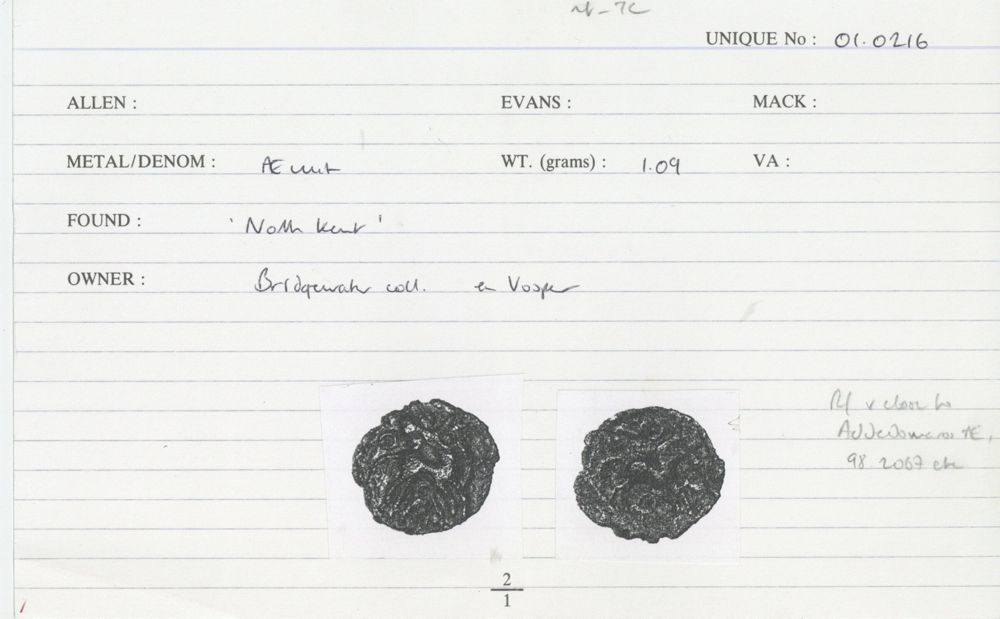 UNIQUE No : 01.0216
ALLEN : EVANS : MACK :
METAL/DENOM : Æ unit WT. (grams) : 1.09 VA :
FOUND : 'North Kent'
OWNER : Bridgewater coll. ex Vosper
v close to
Addedomaros Æ,
98.2067 etc
2
1